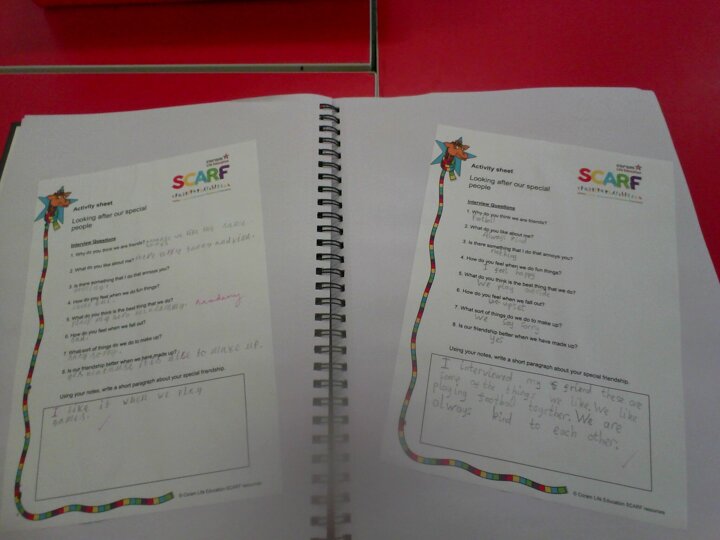 Activity sheet
coram
Life Education
SCARF
Looking after our special
people
Interview Questions
1. Why do you think we are friends? because we like the same
2. What do you like about me?
3. Is there something that I do that annoys you?
nothing
4. How do you feel when we do fun things?
5. What do you think is the best thing that we do?
6. How do you feel when we fall out?
sad.
7. What sort of things do we do to make up?
say sorry.
8. Is our friendship better when we have made up?
to make up.
Using your notes, write a short paragraph about your special friendship.
I like it when we play
games.
© Coram Life Education SCARF resources
Activity sheet
coram
Life Education
SCARF
Looking after our special
people
Interview Questions
1. Why do you think we are friends?
football
2. What do you like about me?
Always kind
3. Is there something that I do that annoys you?
nothing
4. How do you feel when we do fun things?
I feel happy
5. What do you think is the best thing that we do?
We play outside
6. How do you feel when we fall out?
upset
7. What sort of things do we do to make up?
We say sorry
8. Is our friendship better when we have made up?
yes
Using your notes, write a short paragraph about your special friendship.
I interviewed my friend these are
some of the things we like. We like
playing football together. We are
always kind to each other.
© Coram Life Education SCARF resources